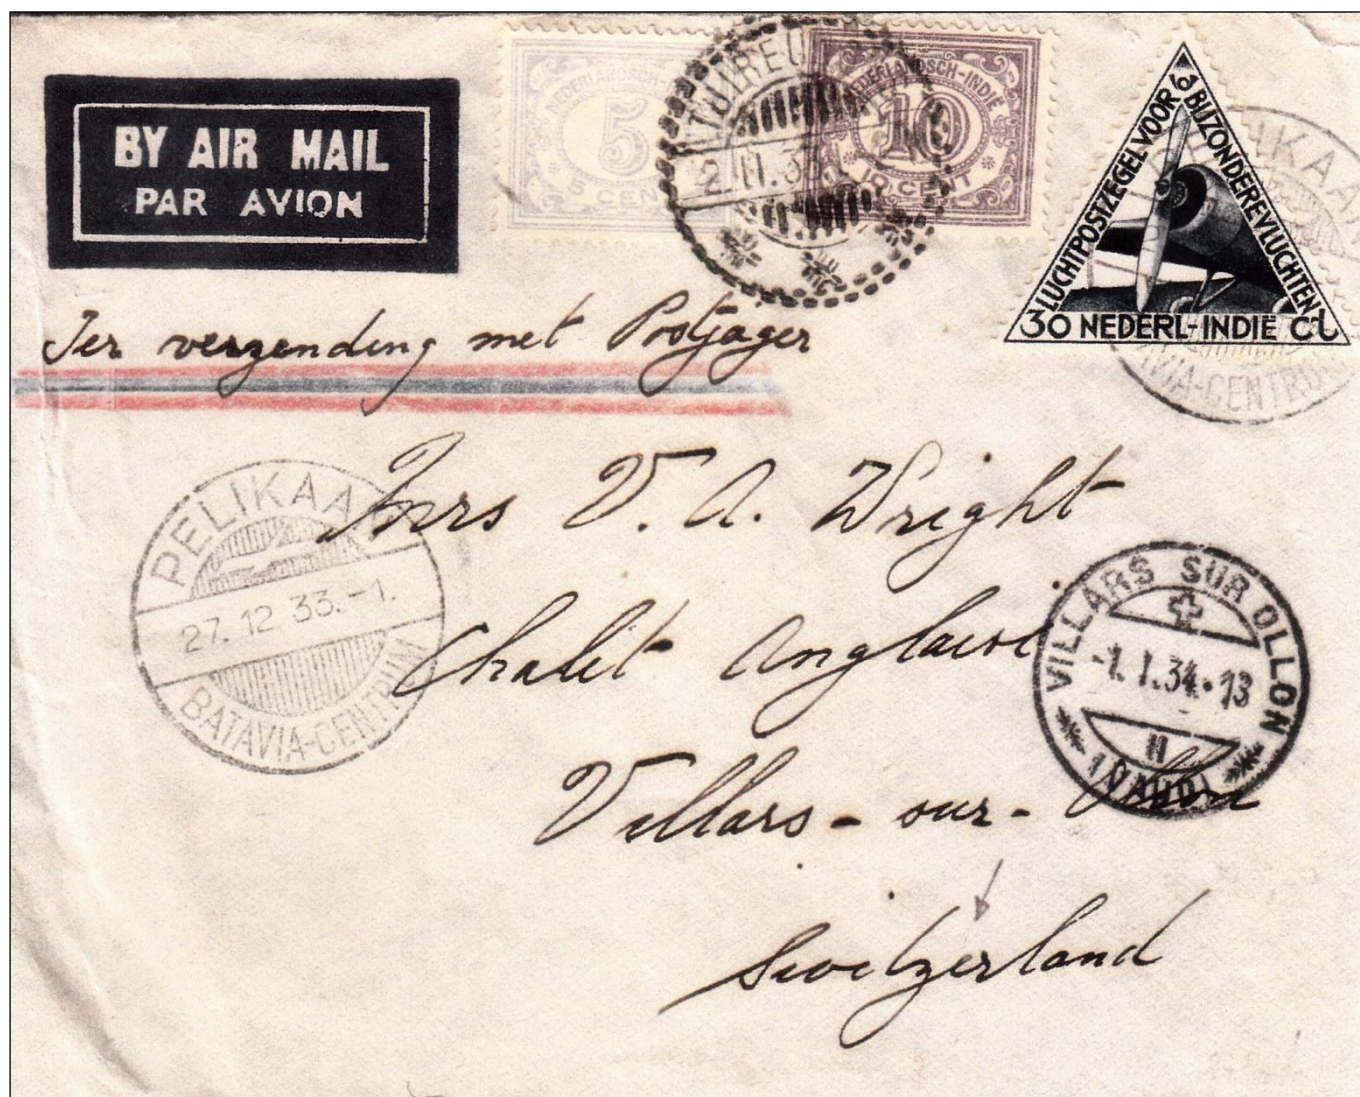 BY AIR MAIL
PAR AVION
NEDERLANDSCH-INDIË
5
5 CENT
TJIREU
2 11.3
NEDERLANDSCH-INDIË
10
10 CENT
LUCHTPOSTZEGEL VOOR BIJZONDERE VLUCHTEN
30 NEDERL-INDIË ct
PELIKAAN
BATAVIA-CENTRUM
Per verzending met Postjager
PELIKAAN
27.12.33.-1.
BATAVIA-CENTRUM
Mrs V. A. Wright
Chalet Anglais
Villars - sur - Ollon
Switzerland
VILLARS SUR OLLON
-1.1.34.-13
II
(VAUD)